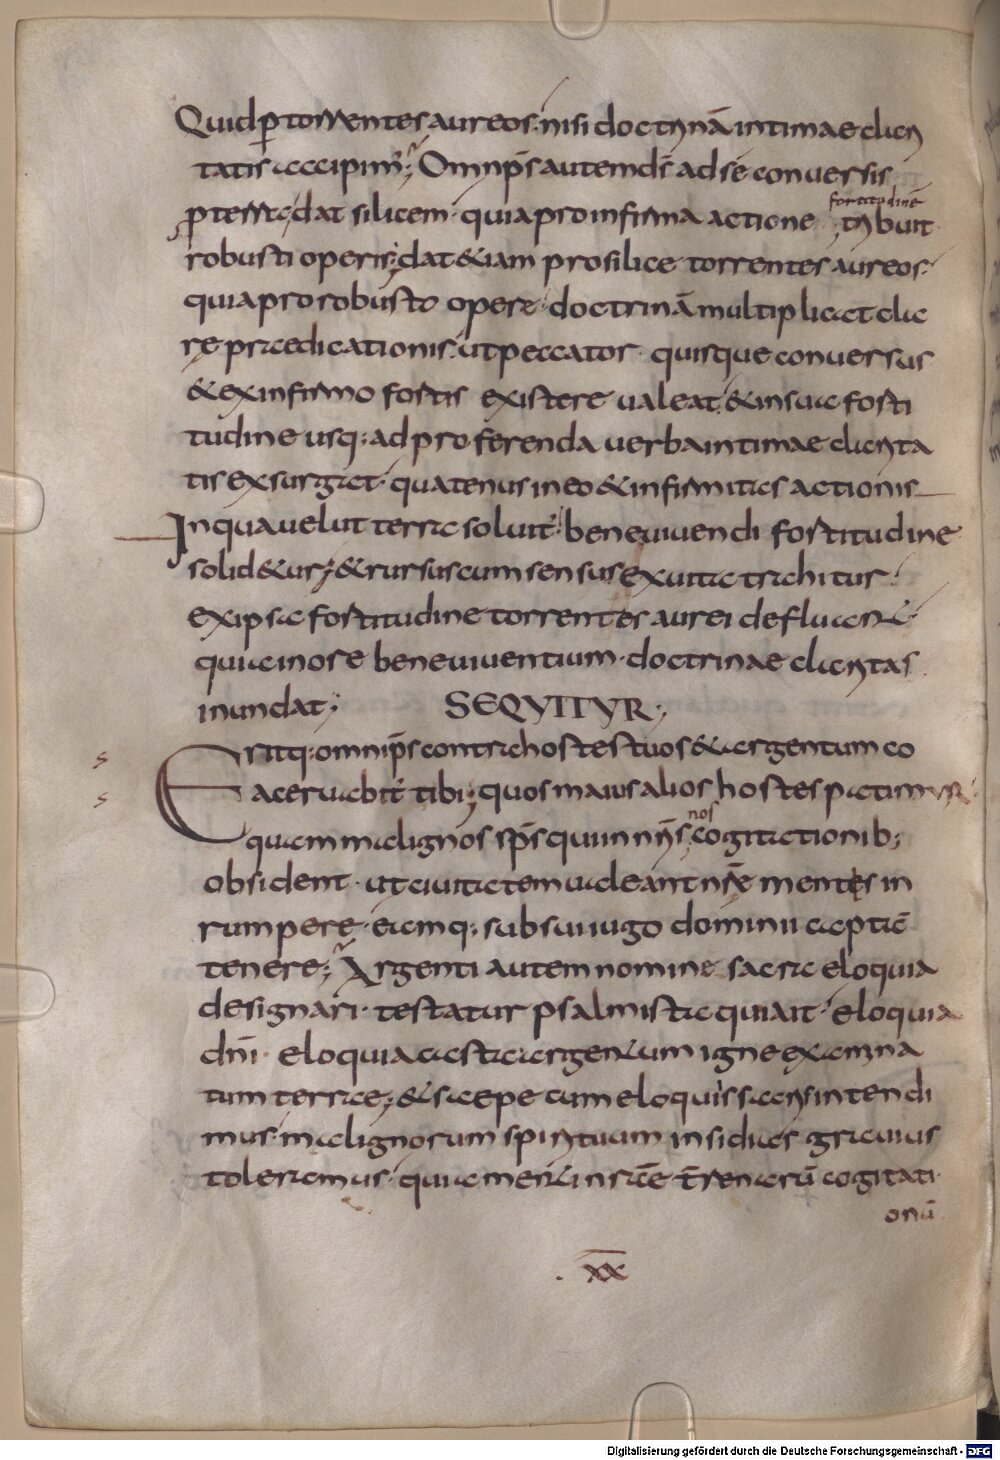 Quid p̲ torrentes aureos· nisi doctrinā intimae clari
tatis accipim̄; Omnip̄s autem ds̄ ad sé conversis
p̲ terra, dat silicem· quia pro infirma actione fortitudinē tribuit·
robusti operis; dat & iam pro silice torrentes aureos·
quia pro robusto opere· doctrinā multiplicat cla
re praedicationis· ut peccator· quisque conversus
& ex infirmo fortis existere valeat· & in sua forti
tudine usq; ad proferenda verba intimae clarita
tis exsurgat· quatenus in eo & infirmitas actionis
In qua velut terra soluit̄· bene vivendi fortitudine
solid&ur; & rursus cum sensus ex vita trahitur·
ex ipsa fortitudine torrentes aurei defluant·
quia in ore bene viventium· doctrinae claritas
inundat; SEQVITVR;
Eritq; omnip̄s contra hostes tuos & argentum co
acervabit̄ tibi; quos maius alios hostes patimur·
quam malignos sp̄s qui in nr̄īs nos cogitationib;
obsident· ut civitatem valeant nr̄ē mentis in
rumpere· eamq; sub sui iugo dominii captā
tenere; Argenti autem nomine sacra eloquia
designari· testatur psalmista qui ait· eloquia
dn̄i· eloquia casta argentum igne examina
tum terrae; & saepe cum eloquiis sacris intendi
mus· malignorum spirituum insidias gravius
toleramus· quia menti nr̄āe t̄renarū cogitati
onū
· x̄x̄
Digitalisierung gefördert durch die Deutsche Forschungsgemeinschaft - DFG